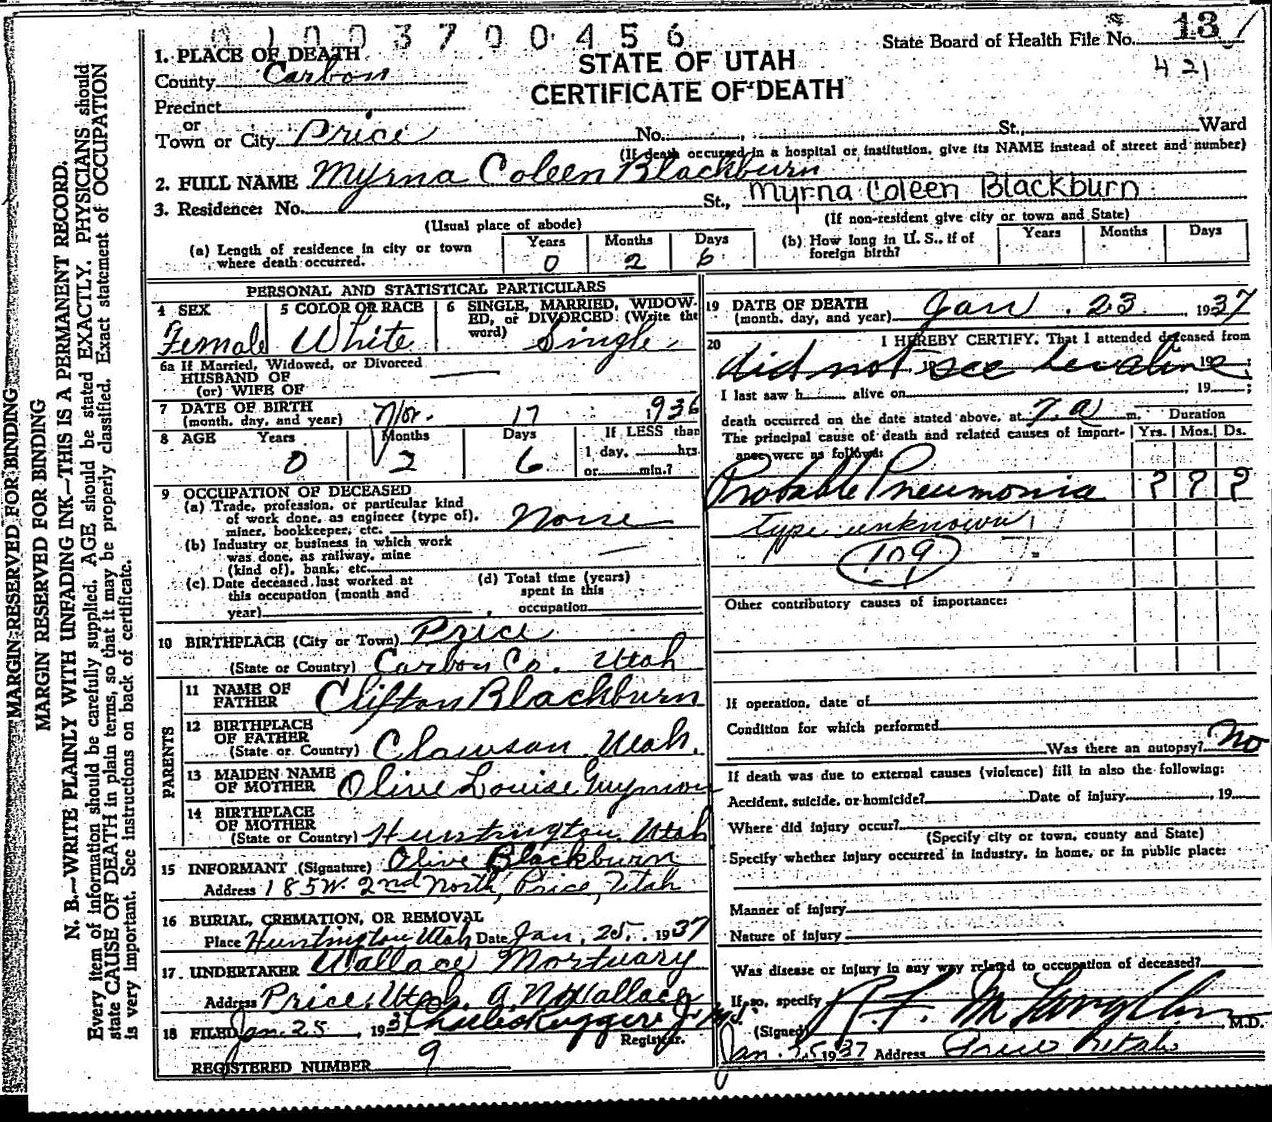 0100370 0456
State Board of Health File No. 13
421
1. PLACE OF DEATH
STATE OF UTAH
County Carbon
CERTIFICATE OF DEATH
Precinct
or
Town or City Price No. , St., Ward
(If death occurred in a hospital or institution, give its NAME instead of street and number)
2. FULL NAME Myrna Coleen Blackburn
3. Residence: No. St., Myrna Coleen Blackburn
(Usual place of abode) (If non-resident give city or town and State)
(a) Length of residence in city or town where death occurred. Years 0 Months 2 Days 6
(b) How long in U. S., if of foreign birth? Years Months Days
PERSONAL AND STATISTICAL PARTICULARS
4 SEX Female
5 COLOR OR RACE White
6 SINGLE, MARRIED, WIDOWED, or DIVORCED (Write the word) Single
6a If Married, Widowed, or Divorced
HUSBAND OF
(or) WIFE OF
7 DATE OF BIRTH
(month, day, and year) Nov. 17 1936
8 AGE Years 0 Months 2 Days 6 If LESS than
1 day, hrs.
or min.?
9 OCCUPATION OF DECEASED
(a) Trade, profession, or particular kind
of work done, as engineer (type of), None
miner, bookkeeper, etc.
(b) Industry or business in which work
was done, as railway, mine
(kind of), bank, etc.
(c) Date deceased last worked at
this occupation (month and
year)
(d) Total time (years)
spent in this
occupation
10 BIRTHPLACE (City or Town) Price
(State or Country) Carbon Co. Utah
PARENTS
11 NAME OF
FATHER Clifton Blackburn
12 BIRTHPLACE
OF FATHER
(State or Country) Clawson Utah.
13 MAIDEN NAME
OF MOTHER Olive Louise Guymon
14 BIRTHPLACE
OF MOTHER
(State or Country) Huntington Utah
15 INFORMANT (Signature) Olive Blackburn
Address 185 W. 2nd North, Price, Utah
16 BURIAL, CREMATION, OR REMOVAL
Place Huntington Utah Date Jan. 25. 1937
17 UNDERTAKER Wallace Mortuary
Address Price, Utah. A. N. Wallace
18 FILED Jan. 25, 193 Charles Ruggeri Jr
Registrar.
REGISTERED NUMBER 9
19 DATE OF DEATH
(month, day, and year) Jan. 23, 1937
20 I HEREBY CERTIFY, That I attended deceased from
did not see
I last saw h alive on , 19 ;
death occurred on the date stated above, at 7 a m.
The principal cause of death and related causes of importance were as follows:
Duration
Yrs. Mos. Ds.
Probable Pneumonia ? ? ?
type unknown
109
Other contributory causes of importance:
If operation, date of
Condition for which performed
Was there an autopsy? No
If death was due to external causes (violence) fill in also the following:
Accident, suicide, or homicide? Date of injury , 19
Where did injury occur?
(Specify city or town, county and State)
Specify whether injury occurred in industry, in home, or in public place:
Manner of injury
Nature of injury
Was disease or injury in any way related to occupation of deceased?
If so, specify
(Signed) R. F. McLaughlin, M.D.
Jan. 25 1937 Address Price Utah
MARGIN RESERVED FOR BINDING
MARGIN RESERVED FOR BINDING
N. B.—WRITE PLAINLY WITH UNFADING INK—THIS IS A PERMANENT RECORD.
Every item of information should be carefully supplied. AGE should be stated EXACTLY. PHYSICIANS should
state CAUSE OF DEATH in plain terms, so that it may be properly classified. Exact statement of OCCUPATION
is very important. See instructions on back of certificate.